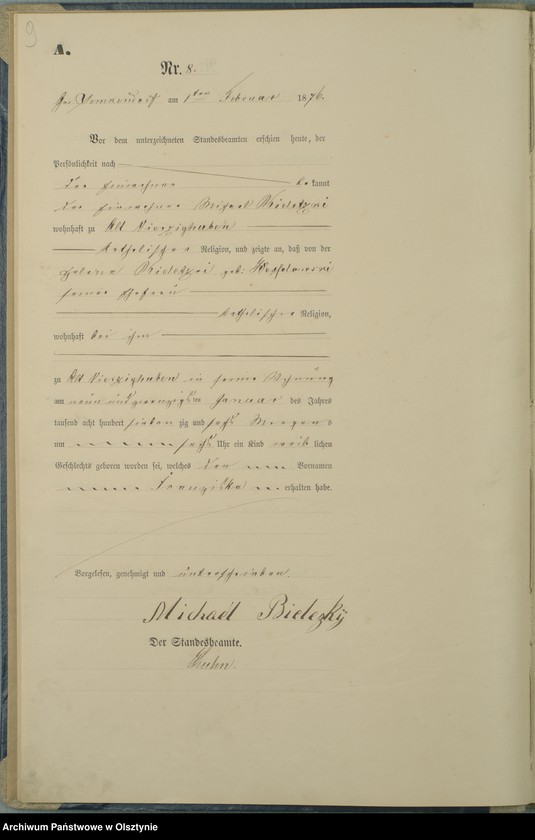 9
A.
Nr. 8.
am 1ten Februar 1876.
Vor dem unterzeichneten Standesbeamten erschien heute, der
Persönlichkeit nach
der Einwohner bekannt
der Einwohner Michael
wohnhaft zu Alt Vierzighuben
katholischer Religion, und zeigte an, daß von der
geb:
seiner Ehefrau
katholischer Religion,
wohnhaft bei ihm
zu Alt Vierzighuben in seiner Wohnung
am neun und zwanzigsten Januar des Jahres
tausend acht hundert siebenzig und sechs Morgens
um sechs Uhr ein Kind weiblichen
Geschlechts geboren worden sei, welches den Vornamen
Franziska erhalten habe.
Vorgelesen, genehmigt und unterschrieben.
Michael Bielezky
Der Standesbeamte.
Archiwum Państwowe w Olsztynie